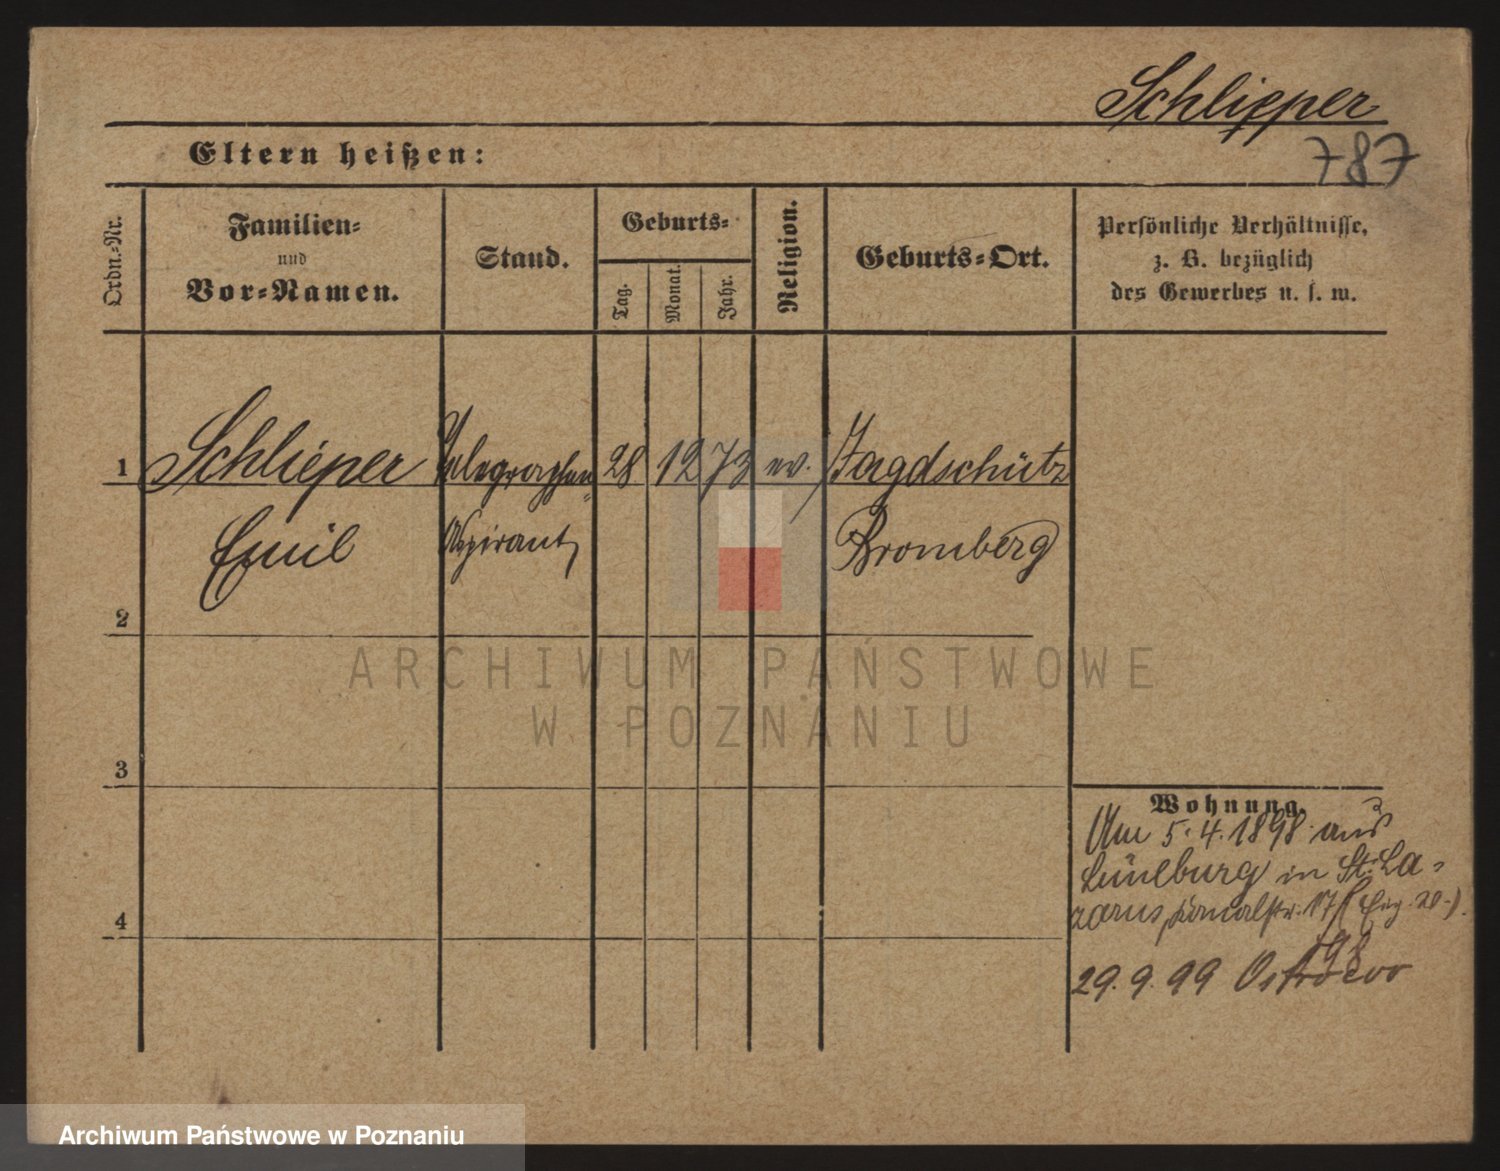 Schlieper
787
Eltern heißen:
Ordn.-Nr.
Familien-
und
Vor-Namen.
Stand.
Geburts-
Tag.
Monat.
Jahr.
Religion.
Geburts-Ort.
Persönliche Verhältnisse,
z. B. bezüglich
des Gewerbes u. s. w.
1 Schlieper Telegraphen- 28 12 73 ev. Jagdschütz
Emil Aspirant Bromberg
2
3
4
Wohnung.
Am 5.4.1898 aus
in St. La-
zarus, Kanalstr. 17
98
29.9.99 Ostrowo
ARCHIWUM PAŃSTWOWE
W POZNANIU
Archiwum Państwowe w Poznaniu